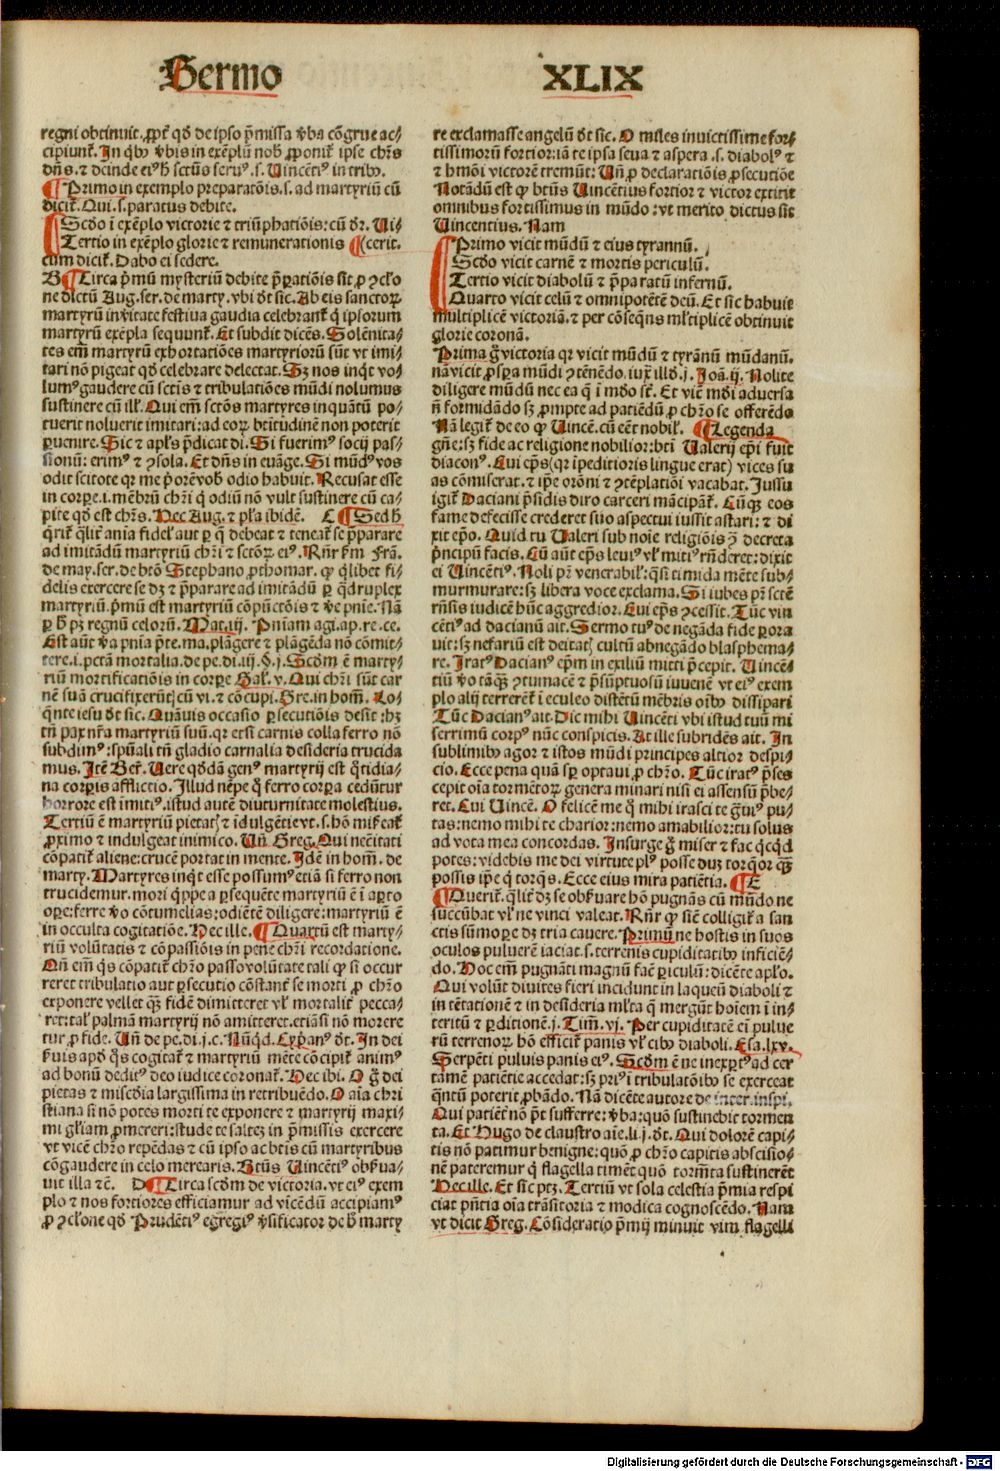 Sermo XLIX
regni obtinuit. ꝓpt̄ qđ de ipso p̄missa v̄ba cōgrue ac⸗
cipiunt̄. In qbꝰ v̄bis in exēplū nob̄ ꝓponit̄ ipse chr̄s
dn̄s. ⁊ deinde eiꝰ b̄ sctūs seruꝰ .s. Uincēti⁹ in tribꝰ.
¶ Primo in exemplo preparatōis .s. ad martyriū cū
dicit̄. Qui .s. paratus debite.
Scdo ī exēplo victorie ⁊ triūphatiōis: cū dr̄. Ui⸗
Tertio in exēplo glorie ⁊ remunerationis ¶ cerit.
cum dicit̄. Dabo ei sedere.
B ¶ Circa pmū mysteriū debite p̄patiōis sit ꝓ ꝯclo
ne dictū Aug. ser. de marty. vbi dt̄ sic. Ab eis sanctoꝝ
martyrū in v̄itate festiua gaudia celebrant̄ q̄ ipsorum
martyrū exēpla sequunt̄. Et subdit dicēs. Solēnita⸗
tes em̄ martyrū exhortatiōes martyriorū sūt vt imi⸗
tari nō pigeat qđ celebrare delectat. Sꝫ nos inqt vo⸗
lumꝰ gaudere cū sctīs ⁊ tribulatiōes mūdi nolumus
sustinere cū ill̄. Qui em̄ sctōs martyres inquātū po⸗
tuerit noluerit imitari: ad eoꝝ btītudinē non poterit
ꝑuenire. Sic ⁊ apl̄s p̄dicat dī. Si fuerimꝰ socij pas⸗
sionū: erimꝰ ⁊ ꝯsola. Et dn̄s in euāge. Si mūdꝰ vos
odit scitote qr me p̄orē vob̄ odio habuit. Recusat esse
in corpe .i. mēbrū chr̄i q̄ odiū nō vult sustinere cū ca⸗
pite qđ est chr̄s. Nec Aug. ⁊ pl̄a ibidē. C ¶ Sed h̄
q̄rit̄ q̄lit̄ aīa fidel̄ aut ꝑ q̄ debeat ⁊ teneat̄ se p̄parare
ad imitādū martyriū chr̄i ⁊ sctōꝝ eiꝰ. Rn̄r km̄ Frā.
de may. ser. de btō Stephano ꝓthomar. ꝙ q̄libet fi⸗
delis exercere se dꝫ ⁊ p̄parare ad imitādū ꝑ q̄druplex
martyriū. pmū est martyriū cōpūctōis ⁊ v̄e pnīe. Nā
ꝑ h̄ pꝫ regnū celorū. Mat. iij. Pn̄iam agi. ap. re. ce.
Est aūt v̄a pn̄ia p̄te. ma. plāgere ⁊ plāgēda nō cōmit⸗
tere .i. pctā mortalia. de pe. di. iij. §. j. Scdm̄ ē marty⸗
riū mortificatiōis in corpe Gal̄. v. Qui chr̄i sūt car
nē suā crucifixerūt cū vi. ⁊ cōcupi. Gre. in hom̄. Lo⸗
q̄nte iesu dt̄ sic. Quāuis occasio ꝑsecutiōis desit: hꝫ
tn̄ pax nr̄a martyriū suū. qr etsi carnis colla ferro nō
subdimꝰ: spūali tn̄ gladio carnalia desideria trucida
mus. Itē Ber̄. Uere qđdā genꝰ martyrij est q̄tidia⸗
na corpis afflictio. Illud nēpe q̄ ferro corpa cedūtur
horrore est īmitiꝰ. istud autē diuturnitate molestius.
Tertiū ē martyriū pietatꝭ ⁊ īdulgētie vt .s. hō miꝭeat̄
ꝓximo ⁊ indulgeat inimico. Un̄ Greg. Qui nc̄citati
cōpatit̄ aliene: crucē portat in mente. Idē in hom̄. de
marty. Martyres inqt esse possumꝰ etiā si ferro non
trucidemur. mori q̄ppe a ꝑsequēte martyriū ē ī apto
ope: ferre v̄o cōtumelias: odiētē diligere: martyriū ē
in occulta cogitatiōe. Hec ille. ¶ Quartū est marty⸗
riū volūtatis ⁊ cōpassiōis in pene chr̄i recordatione.
Qn̄ em̄ q̄s cōpatit̄ chr̄o passo volūtate tali ꝙ si occur
reret tribulatio aut ꝑsecutio cōstāt̄ se morti ꝓ chr̄o
exponere vellet q̄ꝫ fidē dimitteret vl̄ mortalit̄ pecca⸗
ret: tal̄ palmā martyrij nō amitteret. etiāsi nō morere
tur ꝓ fide. Un̄ de pe. di. j. c. Nūqd. Cyp̄anꝰ dt̄. In dei
ẜuis apđ q̄s cogitat̄ ⁊ martyriū mēte cōcipit̄ animꝰ
ad bonū deditꝰ deo iudice coronat̄. Hec ibi. O ḡ dei
pietas ⁊ misc̄dia largissima in retribuēdo. O aīa chri
stiana si nō potes morti te exponere ⁊ martyrij maxi⸗
mi gl̄iam ꝓmereri: stude te saltez in p̄missis exercere
vt vicē chr̄o repēdas ⁊ cū ipso ac btīs cū martyribus
cōgaudere in celo merearis. Btūs Uincētiꝰ obẜua⸗
uit illa ⁊c̄. D ¶ Circa scdm̄ de victoria. vt eiꝰ exem
plo ⁊ nos fortiores efficiamur ad vicēdū accipiamꝰ
ꝓ ꝯclone qđ Prudētiꝰ egregiꝰ v̄sificator de b̄ marty
re exclamasse angelū dt̄ sic. O miles inuictissime for⸗
tissimorū fortior: iā te ipsa seua ⁊ aspera .s. diabolꝰ ⁊
⁊ hmōi victorē tremūt: Un̄ ꝓ declaratiōis ꝓsecutiōe
Notādū est ꝙ btūs Uincētius fortior ⁊ victor extitit
omnibus fortissimus in mūdo: vt merito dictus sit
Uincentius. Nam
Primo vicit mūdū ⁊ eius tyrannū.
Scdo vicit carnē ⁊ mortis periculū.
Tertio vicit diabolū ⁊ p̄paratū infernū.
Quarto vicit celū ⁊ omnipotētē deū. Et sic habuit
multiplicē victoriā. ⁊ per cōseqns ml̄tiplicē obtinuit
glorie coronā.
Prima ḡ victoria qr vicit mūdū ⁊ tyrānū mūdanū.
nā vicit ꝓspa mūdi ꝯtēnēdo. iux̄ illđ .j. Joā. ij. Nolite
diligere mūdū nec ea q̄ ī mđo st̄. Et vicē mđi aduersa
n̄ formidādo sꝫ ꝓmpte ad patiēdū ꝓ chr̄o se offerēdo
Nā legit̄ de eo ꝙ Uincē. cū cēt nobil̄. ¶ Legenda
gn̄e: sꝫ fide ac religione nobilior: btī Ualerij ep̄i fuit
diaconꝰ. Cui ep̄s (qr īpeditioris lingue erat) vices su
as cōmiserat. ⁊ ip̄e orōni ⁊ ꝯtēplatiōi vacabat. Jussu
igit̄ Daciani p̄sidis diro carceri mācipāt̄. Cūqꝫ eos
fame defecisse crederet suo aspectui iussit astari: ⁊ di
xit ep̄o. Quid tu Ualeri sub noīe religiōis ꝯ decreta
p̄ncipū facis. Cū aūt ep̄s leuiꝰ vl̄ mitiꝰ rn̄deret: dixit
ei Uincētiꝰ. Noli pr̄ venerabil̄: q̄si timida mēte sub⸗
murmurare: sꝫ libera voce exclama. Si iubes pr̄ sctē
rn̄sis iudicē hūc aggredior. Cui ep̄s ꝯcessit. Tūc vin
cētiꝰ ad dacianū ait. Sermo tuꝰ de negāda fide ꝑora
uit: sꝫ nefariū est deitatꝭ cultū abnegādo blasphema⸗
re. Iratꝰ Dacianꝰ ep̄m in exiliū mitti p̄cepit. Uincē⸗
tiū v̄o tāqꝫ ꝯtumacē ⁊ p̄sūptuosū iuuenē vt eiꝰ exem
plo alij terrerēt̄ ī eculeo distētū mēbris oībꝰ dissipari
Tūc Dacianꝰ ait. Dic mihi Uincēti vbi istud tuū mi
serrimū corpꝰ nūc conspicis. At ille subridēs ait. In
sublimibꝰ agor ⁊ istos mūdi principes altior despi⸗
cio. Ecce pena quā sp̄ optaui ꝓ chr̄o. Tūc iratꝰ p̄ses
cepit oīa tormētoꝝ genera minari nisi ei assensū p̄be⸗
ret. Cui Uincē. O felicē me q̄ mihi irasci te ḡuiꝰ pu⸗
tas: nemo mihi te charior: nemo amabilior: tu solus
ad vota mea concordas. Insurge ḡ miser ⁊ fac q̄cqđ
potes: videbis me dei virtute plꝰ posse duꝫ torq̄or q̄ꝫ
possis ip̄e q̄ torq̄s. Ecce eius mira patiētia. ¶ E
Querit̄. q̄lit̄ dꝫ se obẜuare hō pugnās cū mūdo ne
succūbat vl̄ ne vinci valeat. Rn̄r ꝙ siē colligit̄ a san
ctis sūmope dꝫ tria cauere. Primū ne hostis in suos
oculos puluerē iaciat .s. terrenis cupiditatibꝰ inficiē⸗
do. Hoc em̄ pugnāti magnū fac̄ ꝑiculū: dicēte apl̄o.
Qui volūt diuites fieri incidunt in laqueū diaboli ⁊
in tētationē ⁊ in desideria ml̄ta q̄ mergūt hoīem ī in⸗
teritū ⁊ ꝑditionē .j. Tim̄. vj. Per cupiditatē em̄ pulue
rū terrenoꝝ hō efficit̄ panis vl̄ cibꝰ diaboli. Esa. lxv.
Serpēti puluis panis eiꝰ. Scdm̄ ē ne inexptꝰ ad cer
tamē patiētie accedat: sꝫ priꝰ ī tribulatōibꝰ se exerceat
q̄ntū poterit ꝓbādo. Nā dicēte autore de inter. inspi.
Qui patiēt̄ nō p̄t sufferre: v̄ba: quō sustinebit tormen
ta. Et Hugo de claustro aīe. li. j. dt̄. Qui dolorē capi⸗
tis nō patimur benigne: quō ꝓ chr̄o capitis abscisio⸗
nē pateremur q̄ flagella timēt quō torm̄ta sustinerēt
Hec ille. Et sic ptꝫ. Tertiū vt sola celestia p̄mia respi
ciat pn̄tia oīa trāsitoria ⁊ modica cognoscēdo. Nam
vt dicit Greg. Cōsideratio p̄mij minuit vim flagelli
Digitalisierung gefördert durch die Deutsche Forschungsgemeinschaft - DFG